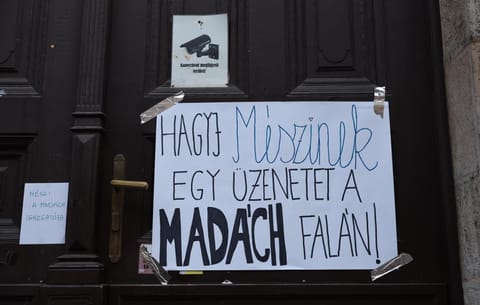 Kamerával megfigyelt
terület!
HAGYJ Mészinek
EGY ÜZENETET A
MADÁCH FALÁN!
MÉSZI
A MADÁCH
IGAZGATÓJA